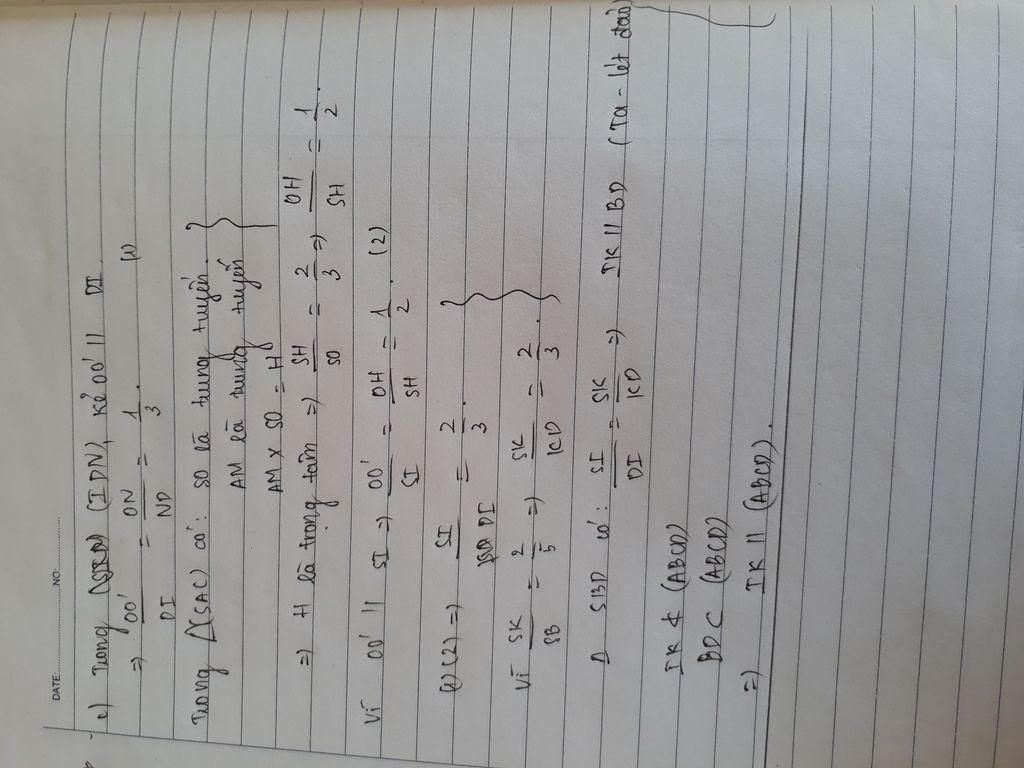 DATE: NO:
c) Trong (IDN), kẻ OO' // DI
=> OO'/DI = ON/ND = 1/3. (1)
Trong Δ(SAC) có: SO là trung tuyến.
AM là trung tuyến
AM x SO = H
=> H là trọng tâm => SH/SO = 2/3 => OH/SH = 1/2.
Vì OO' // SI => OO'/SI = OH/SH = 1/2. (2)
(1)(2) => SI/DI = 2/3
Vì SK/SB = 2/5 => SK/KD = 2/3.
Δ SBD có: SI/DI = SK/KD => IK // BD (Ta-lét đảo)
IK ⊄ (ABCD)
BD ⊂ (ABCD)
=> IK // (ABCD).